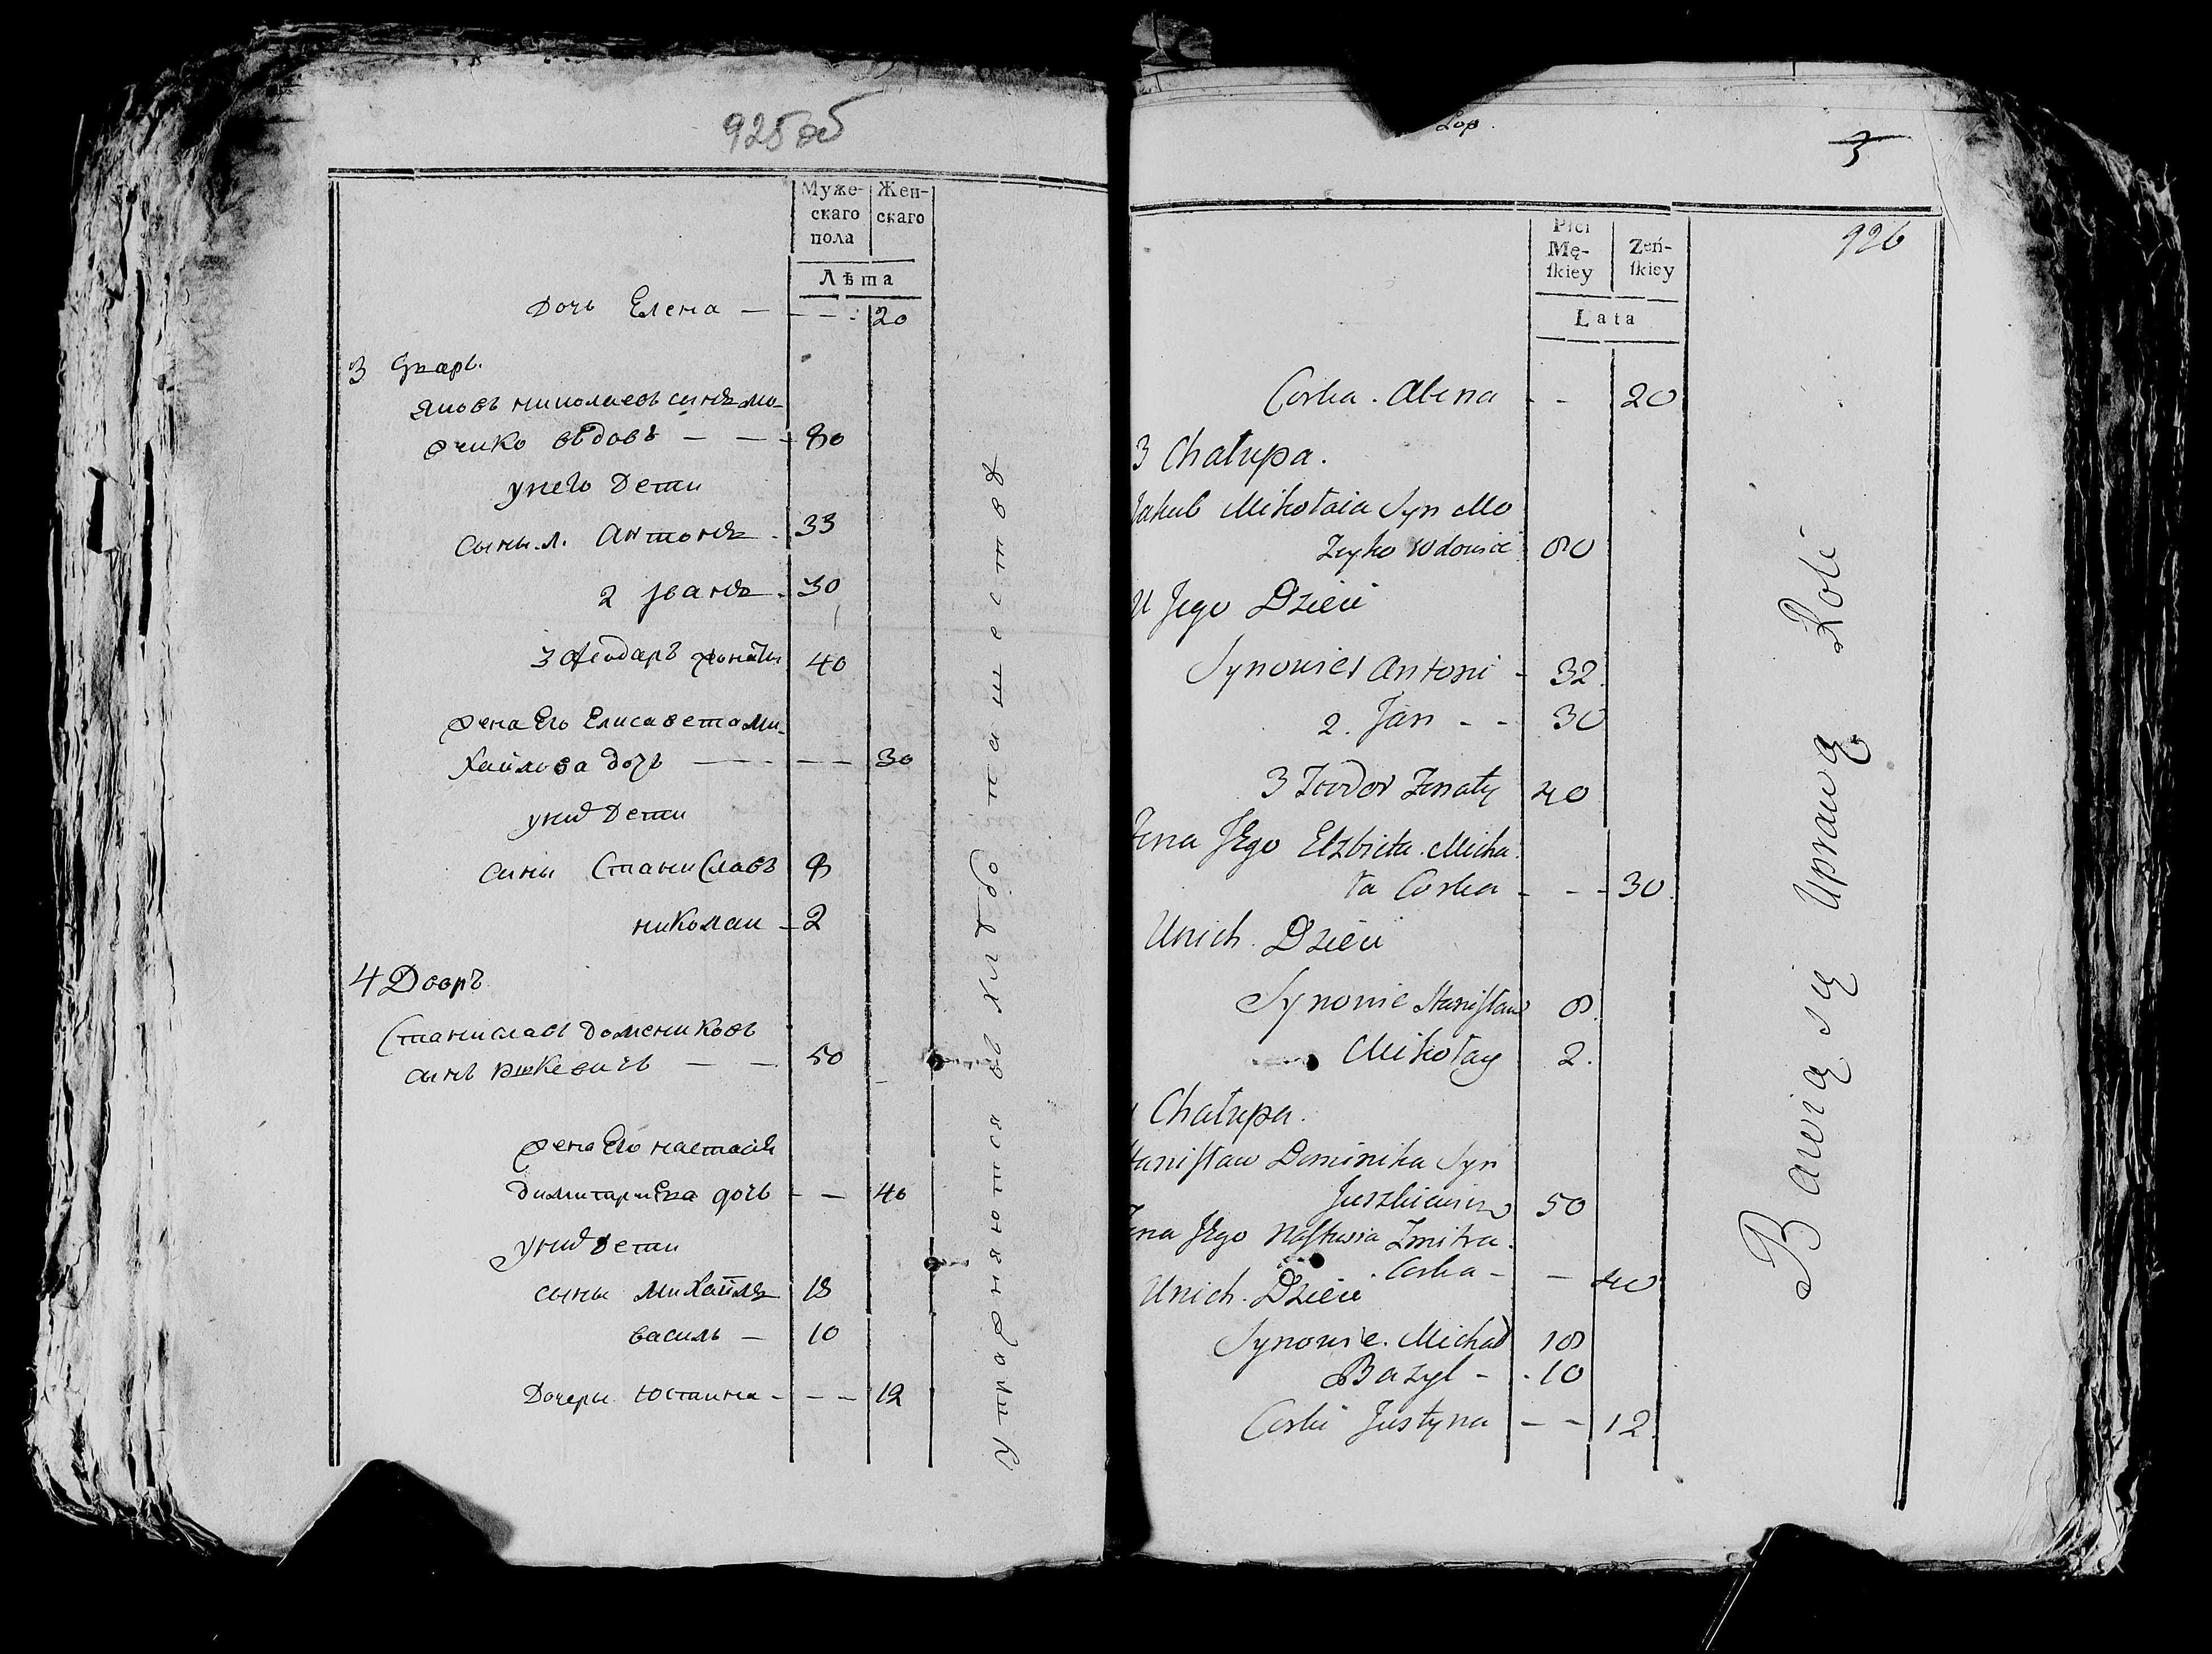 925 об
Муже-
скаго
пола
Жен-
скаго
Лѣта
Дочь Елена — - - - 20
3 Дваръ.
Яковъ николаевъ сынъ мо-
жеико вѣдовъ — — - 80
унего Дети
сыны. 1. Антонъ - 33
2 Иванъ - 30
3 Феодаръ жонаты 40
жена Его Елисавета ми-
хайлова дочъ — - - - — 30
уних Дети
сины Станиславъ 8
николаи - 2
4 Дворъ
Станиславъ домениковъ
сынъ юшкевичъ — — 50
жена Его настасия
димитриева дочь - — 40
уних дети
сыны михайлъ 18
василь — 10
Дочеры юстина - - — 12
упражняются въ хлѣбопашествѣ
Lop.
3
926
Płci
Mę-
ſkiey
Zeń-
ſkiey
Lata
Corka. Alena - - 20
3 Chałupa.
Jakub Mikołaia Syn Mo
żeyko wdowiec 80
U Jego Dzieci
Synowie 1 Antoni - 32.
2. Jan - - 30
3 Teodor Żonaty 40
Żena Jego Elżbieta. Micha.
ła Corka - - - 30.
Unich. Dzieci
Synowie Stanisław 8.
Mikołay 2.
Chałupa.
Stanisław Dominika Syn
Juszkiewicz 50
Żena Jego Nastusia Zmitra.
Corka - — 40
Unich. Dzieci
Synowie. Michał 18
Bazyl - - 10
Corki Justyna — — 12.
Bawią się Uprawą Roli